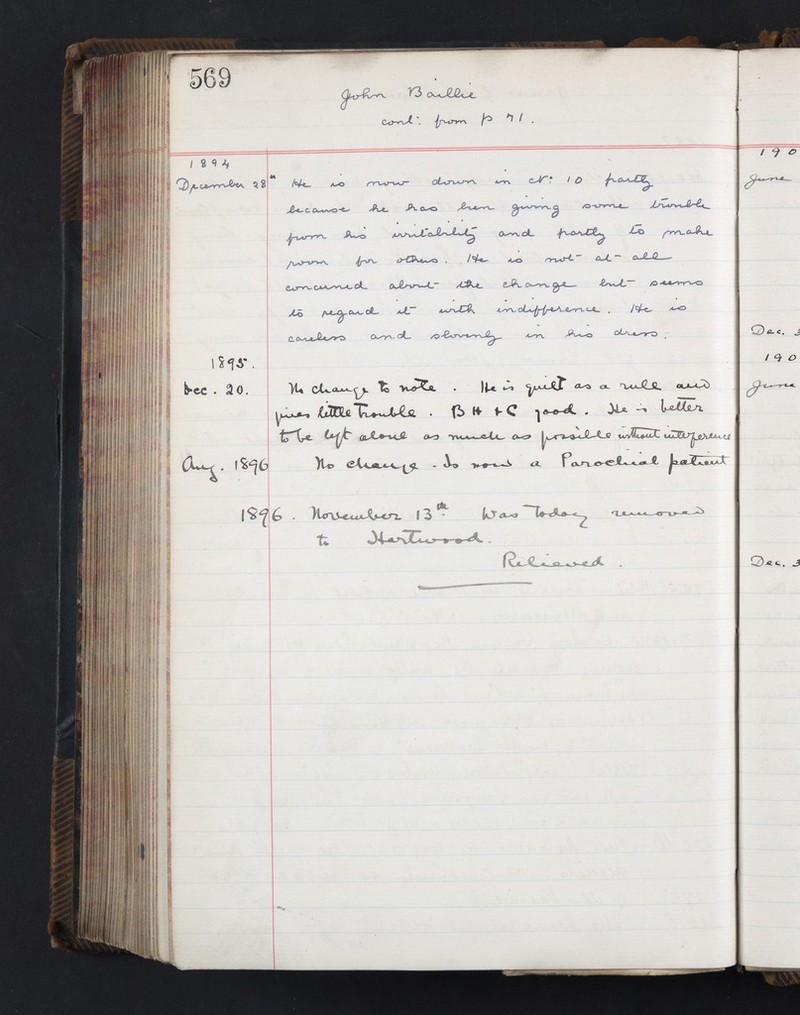 569
John Baillie
cont: from p 71.
1894
December 28th He is now down in No: 10 partly
because he has been giving some trouble
from his irritability and partly to make
room for others. He is not at all
concerned about the change but seems
to regard it with indifference. He is
careless and slovenly in his dress.
1895.
Dec. 20. No change to note. He is quiet as a rule and
gives little trouble. B H & C good. He is better
to be left alone as much as possible without interference
Aug. 1896 No change. Is now a Parochial patient
1896. November 13th Was today removed
to Hartwood.
Relieved.
190
June
Dec. 3
190
June
Dec. 3